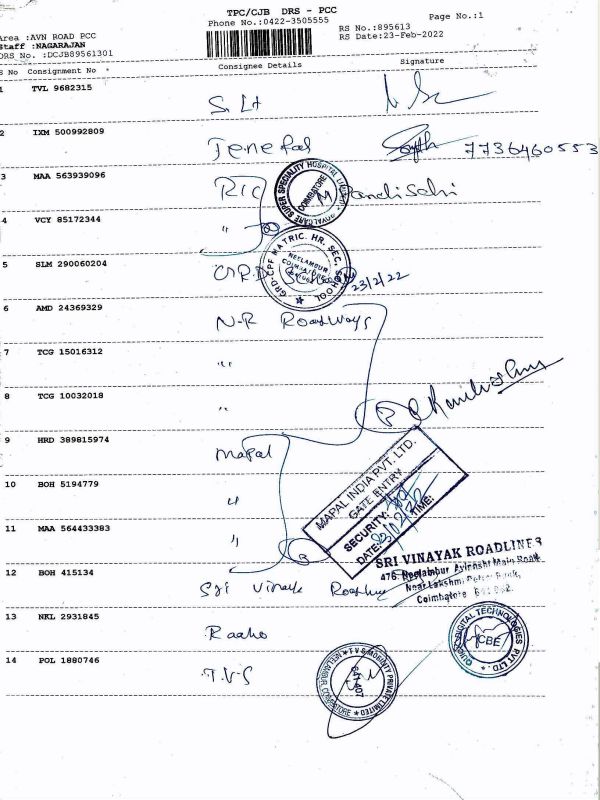 TPC/CJB DRS - PCC
Phone No.:0422-3505555 Page No.:1
Area :AVN ROAD PCC RS No.:895613
Staff :NAGARAJAN RS Date:23-Feb-2022
DRS No. :DCJB89561301
S No Consignment No Consignee Details Signature
1 TVL 9682315
2 IXM 500992809 7736460553
3 MAA 563939096
ROYALCARE SUPER SPECIALITY HOSPITAL LIMITED COIMBATORE
4 VCY 85172344 "
5 SLM 290060204 GRD School 23/2/22
GRD-CPF MATRIC. HR. SEC. SCHOOL NEELAMBUR COIMBATORE
6 AMD 24369329 N.R Roadways
7 TCG 15016312 "
8 TCG 10032018 "
9 HRD 389815974 Mapal
MAPAL INDIA PVT. LTD.
GATE ENTRY
SECURITY:
DATE: TIME:
10 BOH 5194779 "
11 MAA 564433383 "
SRI VINAYAK ROADLINES
Neelambur Avinashi Main Road
Near Lakshmi
Coimbatore
12 BOH 415134 Sri Vinayak
13 NKL 2931845 Raaho
DIGITAL TECHNOLOGIES PVT LTD CBE
14 POL 1880746 T.V.S
TVS MOBILITY PRIVATE LIMITED 641 407